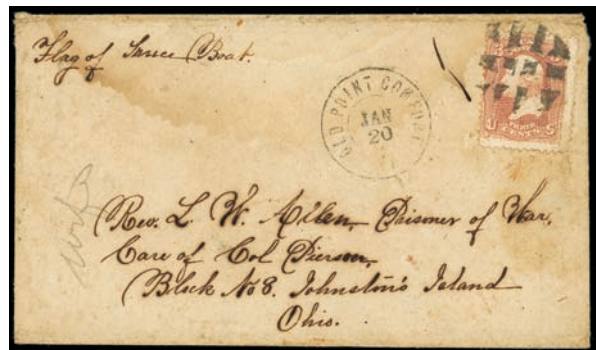 Flag of Truce Boat.
OLD POINT COMFORT
JAN
20
U THREE CENTS S
Rev. L. W. Allen, Prisoner of War,
Care of Col Pierson,
Block No 8. Johnston's Island
Ohio.